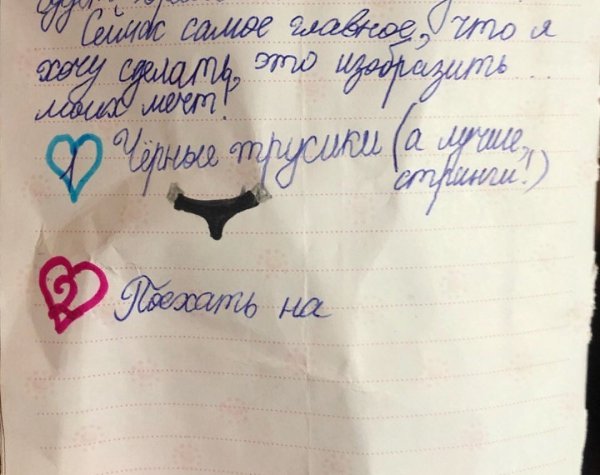 Сейчас самое главное, что я
хочу сделать, это изобразить
моих мечт!
1 Чёрные трусики (а лучше,
стринги!)
2 Поехать на